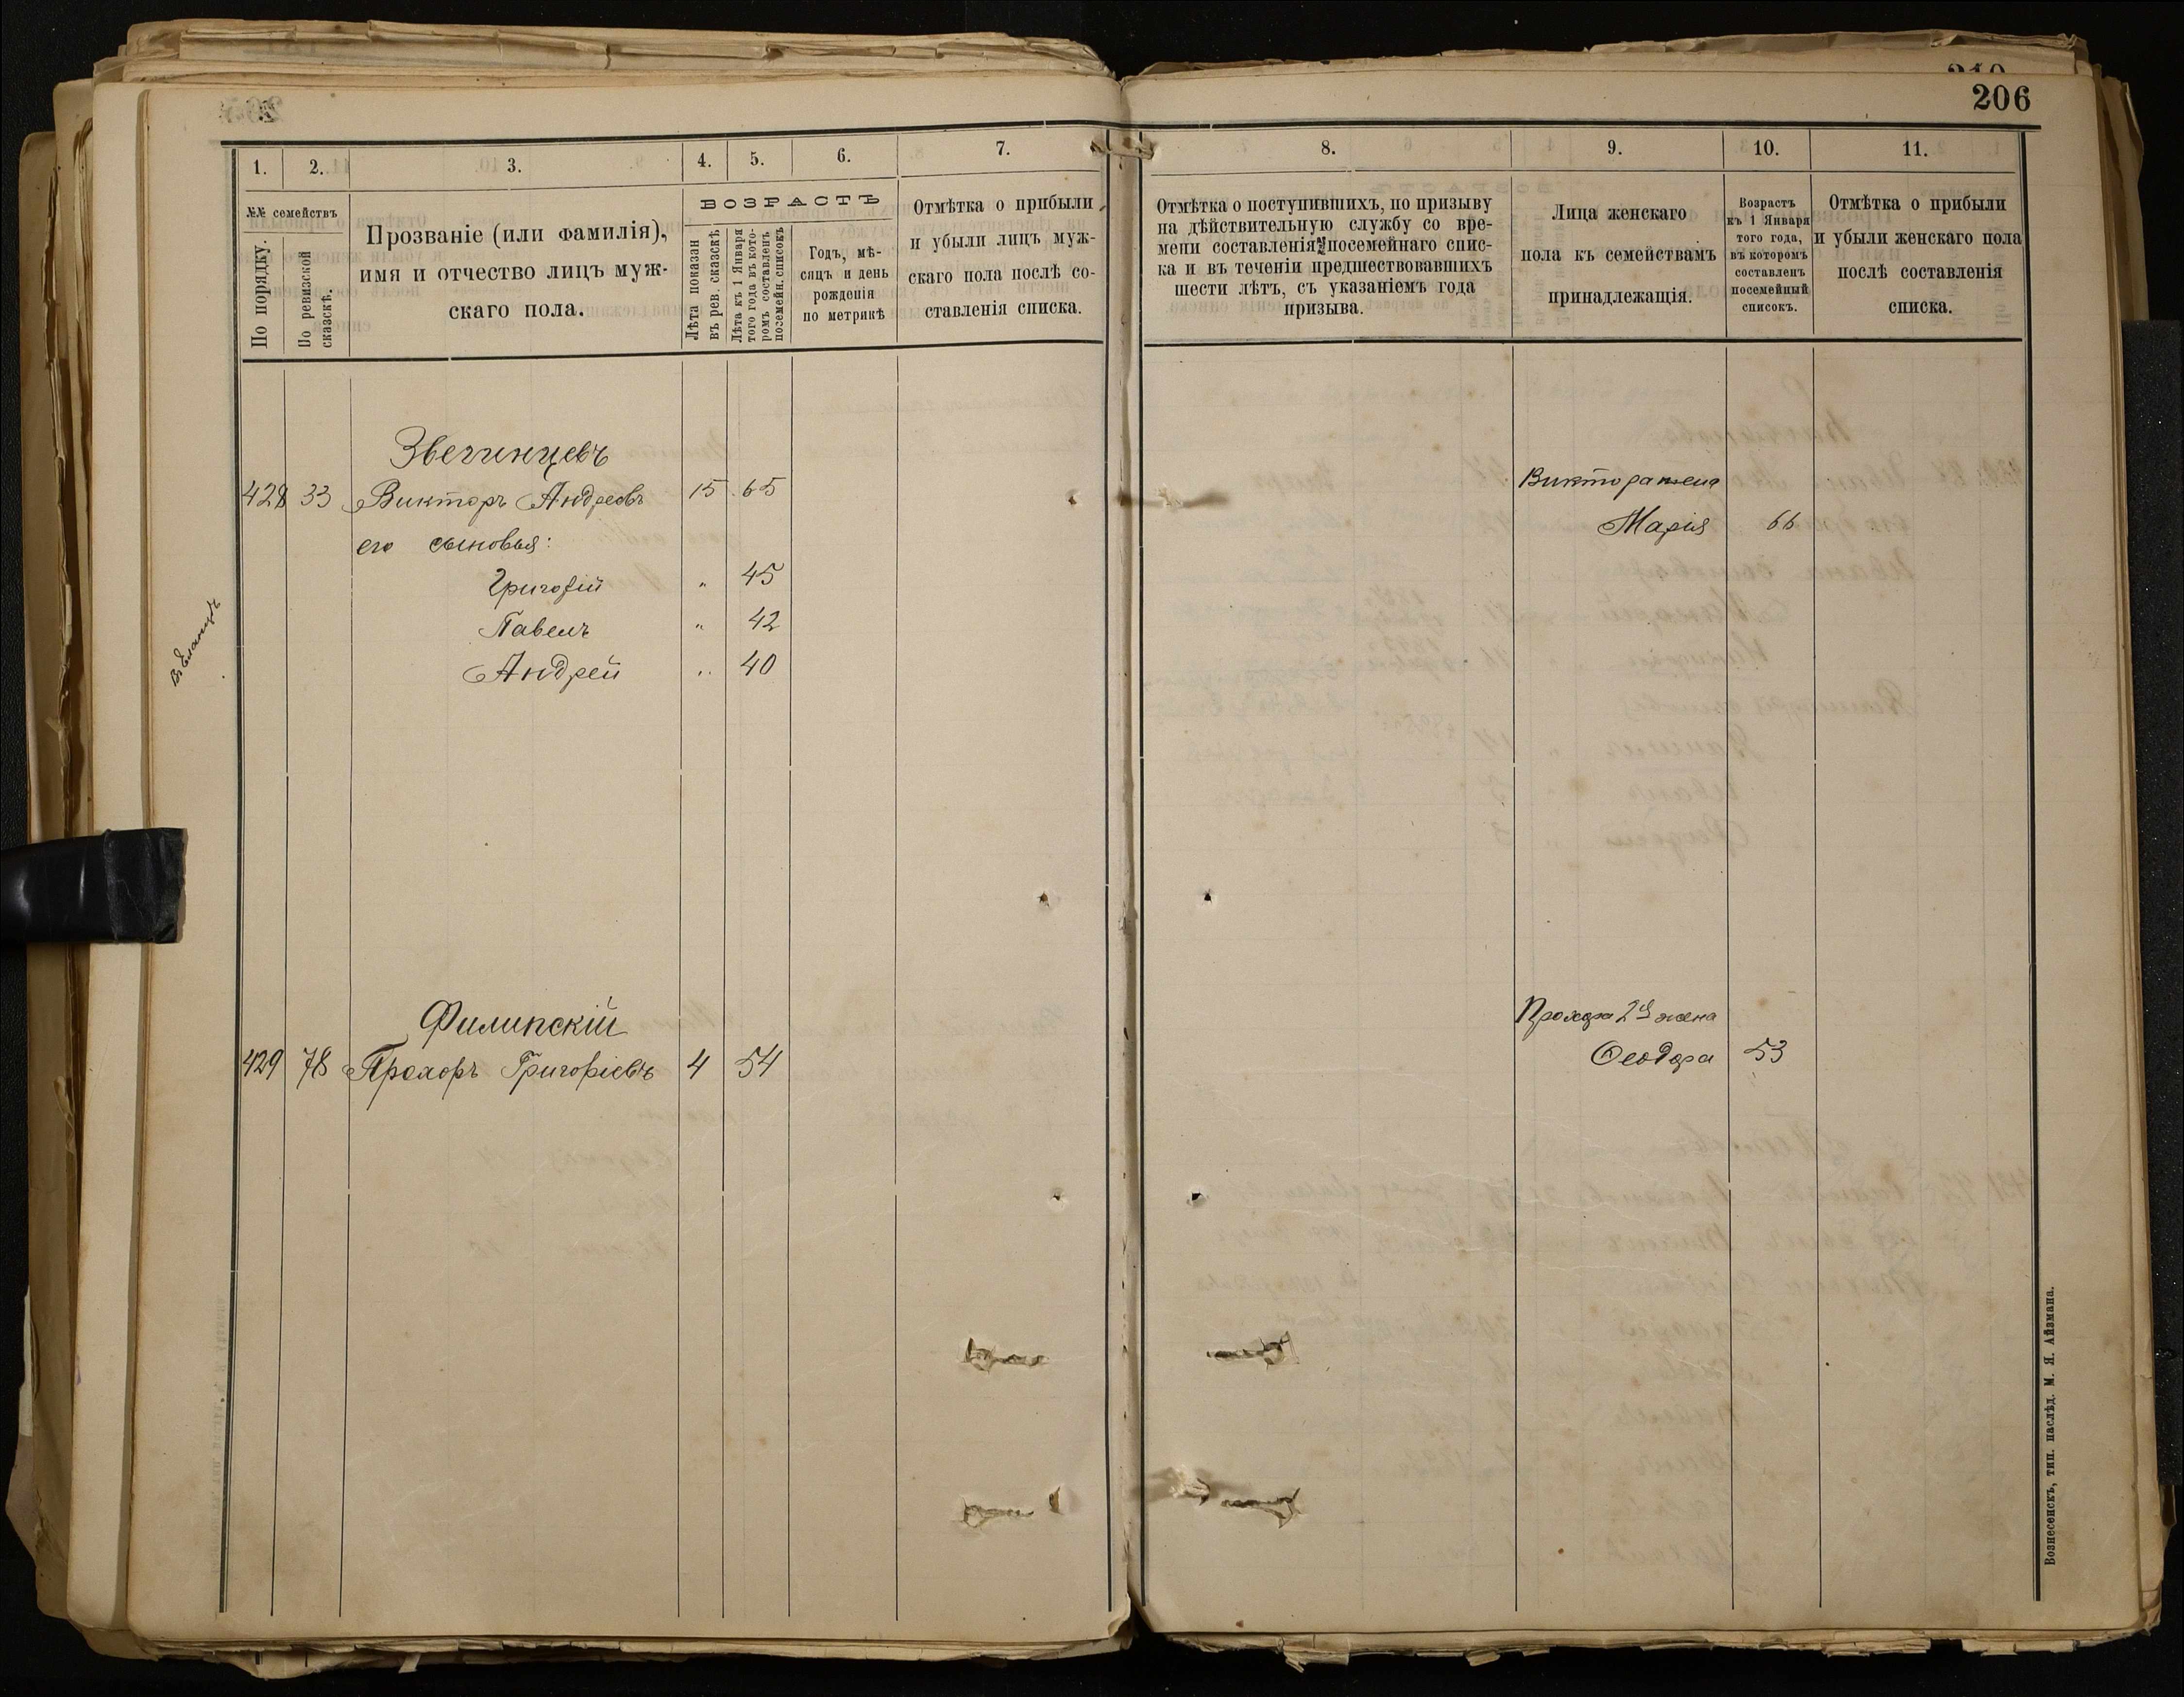 206
1. 2. 3. 4. 5. 6. 7.
№№ семействъ
По порядку.
По ревизской сказскѣ.
Прозваніе (или фамилія),
имя и отчество лицъ муж-
скаго пола.
ВОЗРАСТЪ
Лѣта показан
въ рев. сказскѣ
Лѣта къ 1 Января
того года въ кото-
ромъ составленъ
посемейн. списокъ
Годъ, мѣ-
сяцъ и день
рожденія
по метрикѣ
Отмѣтка о прибыли
и убыли лицъ муж-
скаго пола послѣ со-
ставленія списка.
8. 9. 10. 11.
Отмѣтка о поступившихъ, по призыву
на дѣйствительную службу со вре-
мени составленія посемейнаго спис-
ка и въ теченіи предшествовавшихъ
шести лѣтъ, съ указаніемъ года
призыва.
Лица женскаго
пола къ семействамъ
принадлежащія.
Возрастъ
къ 1 Января
того года,
въ которомъ
составленъ
посемейный
списокъ.
Отмѣтка о прибыли
и убыли женскаго пола
послѣ составленія
списка.
Звегинцевъ
428 33 Викторъ Андреевъ 15 65
его сыновья:
Григорій " 45
Павелъ " 42
Андрей " 40
Виктора жена
Марія 66
Филипскій
429 78 Прохоръ Григоріевъ 4 54
Прохора 2я жена
Феодора 53
Вознесенскъ, тип. наслѣд. М. Я. Айзмана.